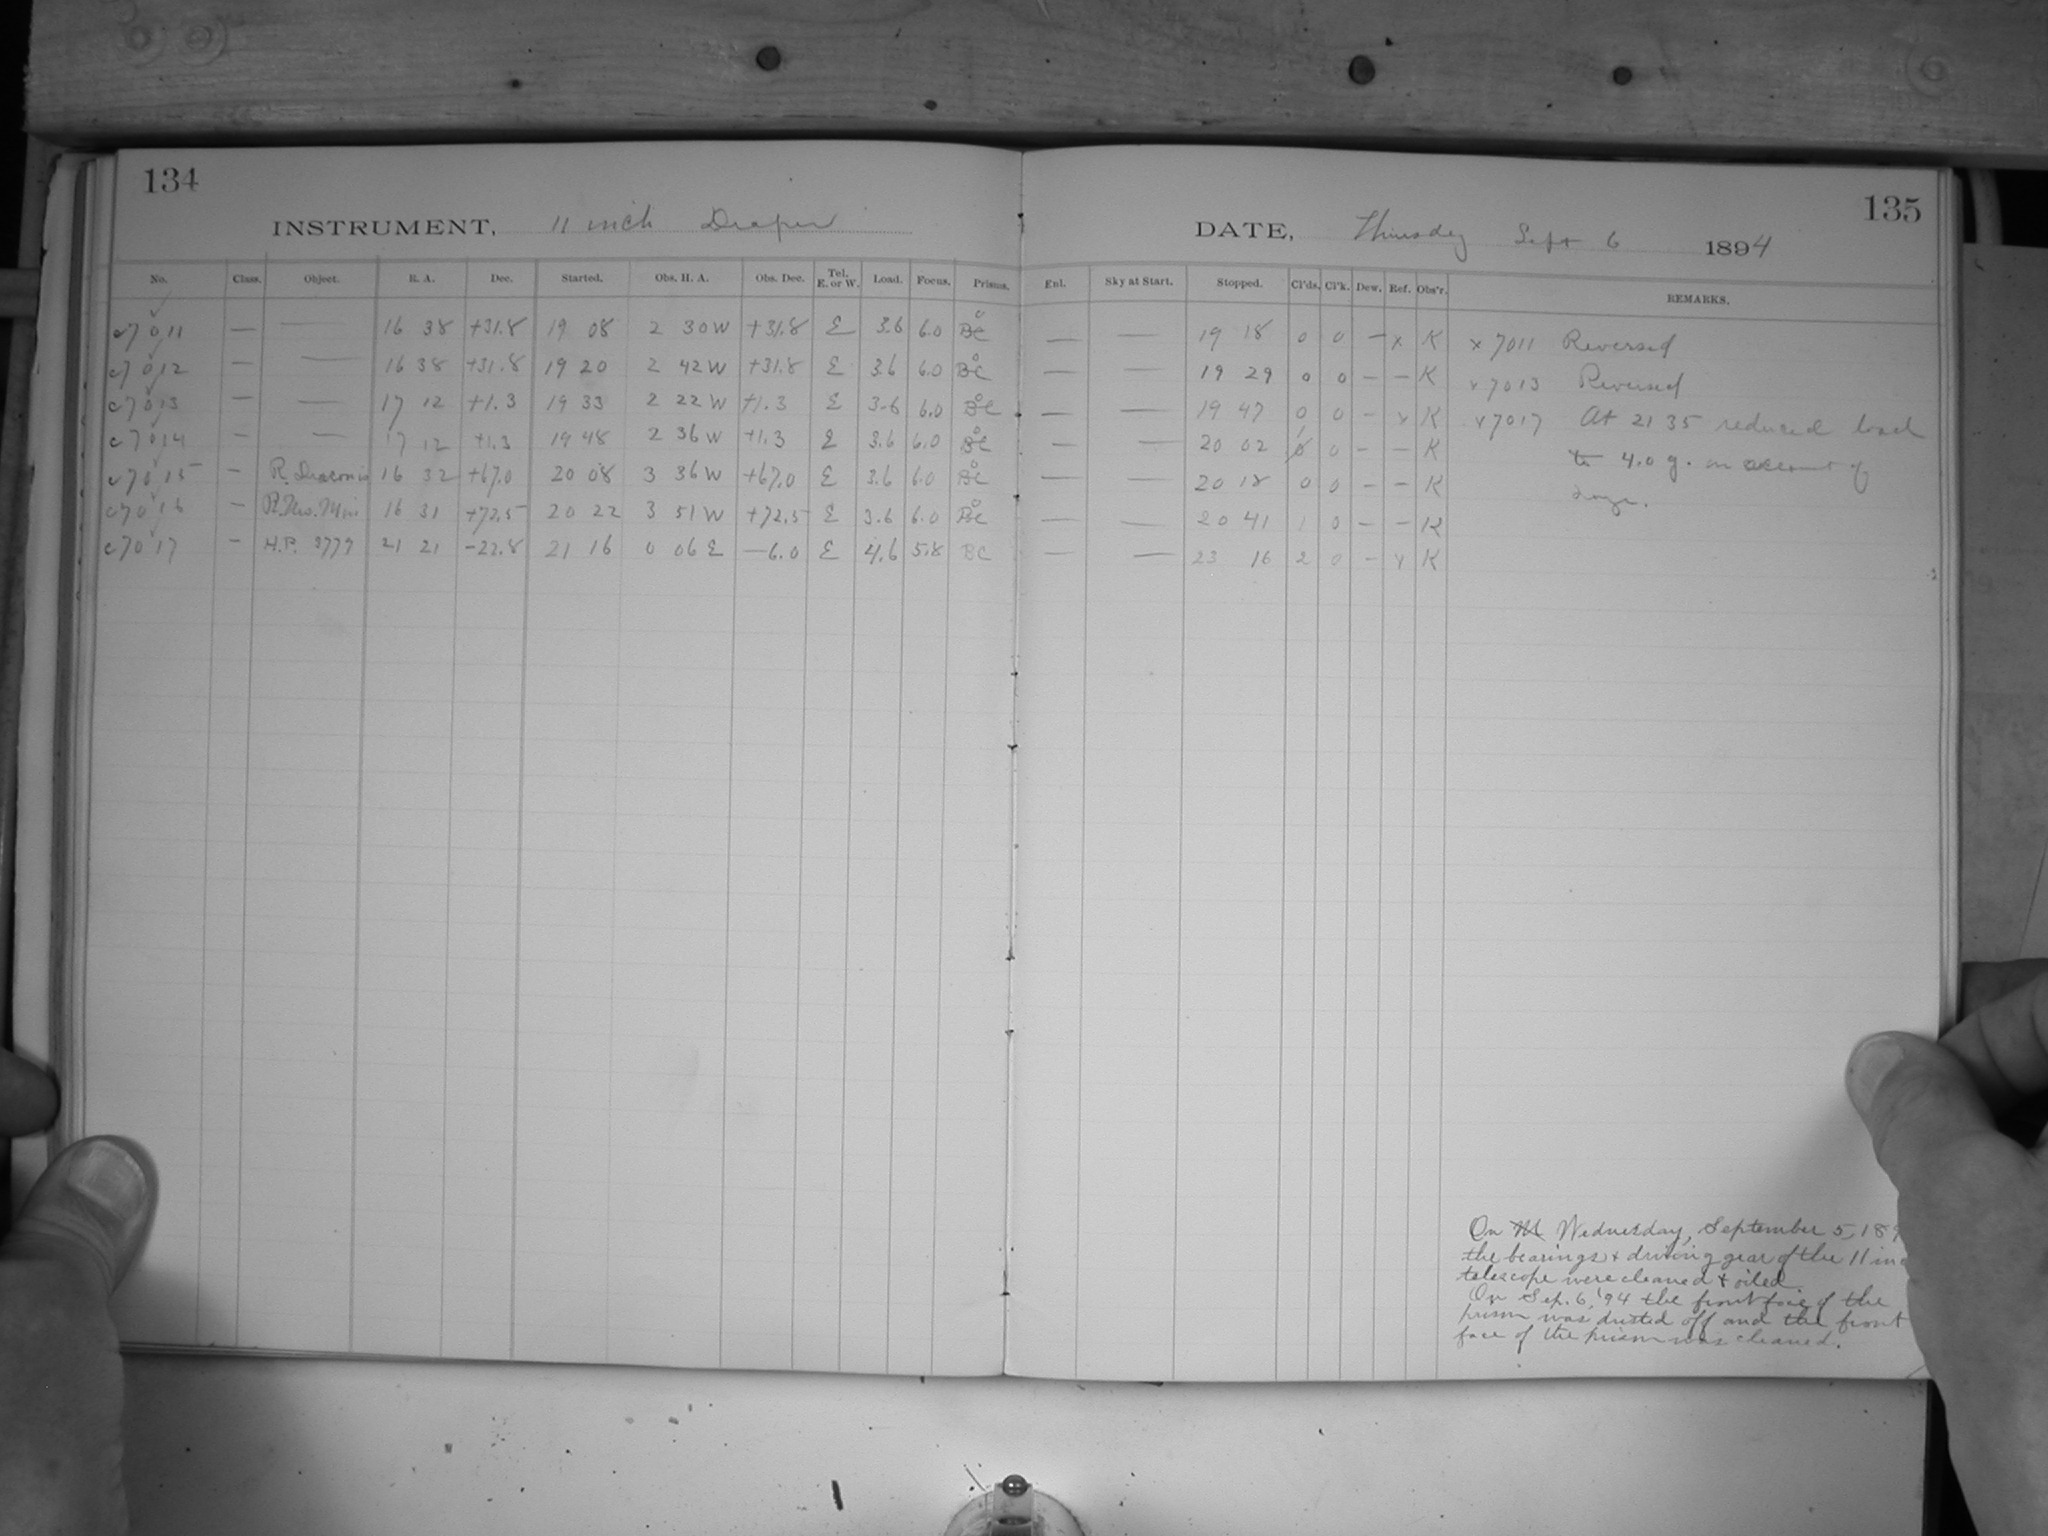 134
INSTRUMENT, 11 inch Draper
No. Class. Object. R. A. Dec. Started. Obs. H. A. Obs. Dec. Tel. E. or W. Load. Focus. Prisms.
c7011 — — 16 38 +31.8 19 08 2 30 W +31.8 E 3.6 6.0 BC
c7012 — — 16 38 +31.8 19 20 2 42 W +31.8 E 3.6 6.0 BC
c7013 — — 17 12 +1.3 19 33 2 22 W +1.3 E 3.6 6.0 BC
c7014 — — 17 12 +1.3 19 48 2 36 W +1.3 E 3.6 6.0 BC
c7015 — R. Draconis 16 32 +67.0 20 08 3 36 W +67.0 E 3.6 6.0 BC
c7016 — R. Urs. Min 16 31 +72.5 20 22 3 51 W +72.5 E 3.6 6.0 BC
c7017 — H.P. 3779 21 21 -22.8 21 16 0 06 E -6.0 E 4.6 5.8 BC
135
DATE, Thursday Sept 6 1894
Enl. Sky at Start. Stopped. Cl'ds. Cl'k. Dew. Ref. Obs'r. REMARKS.
— — 19 18 0 0 — x K x 7011 Reversed
— — 19 29 0 0 — — K x 7013 Reversed
— — 19 47 0 0 — x K x 7017 At 21 35 reduced load
— — 20 02 1 0 — — K to 4.0 g. on account of
— — 20 18 0 0 — — K
— — 20 41 1 0 — — K
— — 23 16 2 0 — x K
On Wednesday, September 5, 189
the bearings + driving gear of the 11 inc
telescope were cleaned + oiled
On Sep. 6, '94 the front face of the
prism was dusted off and the front
face of the prism was cleaned.